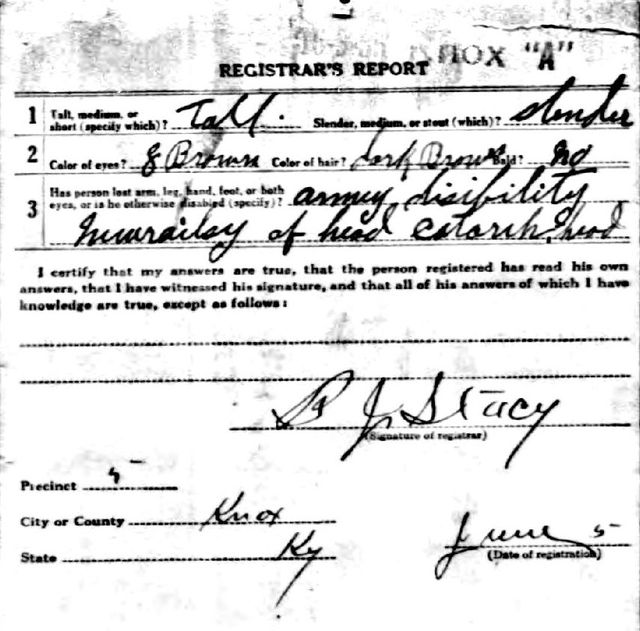 KNOX "A"
REGISTRAR'S REPORT
1 Tall, medium, or short (specify which)? Tall. Slender, medium, or stout (which)? slender
2 Color of eyes? Brown Color of hair? dark Brown Bald? no
3 Has person lost arm, leg, hand, foot, or both eyes, or is he otherwise disabled (specify)? army disibility
of head catarrh head
I certify that my answers are true, that the person registered has read his own
answers, that I have witnessed his signature, and that all of his answers of which I have
knowledge are true, except as follows:
J. Stacy
(Signature of registrar)
Precinct 5
City or County Knox
State Ky
June 5
(Date of registration)